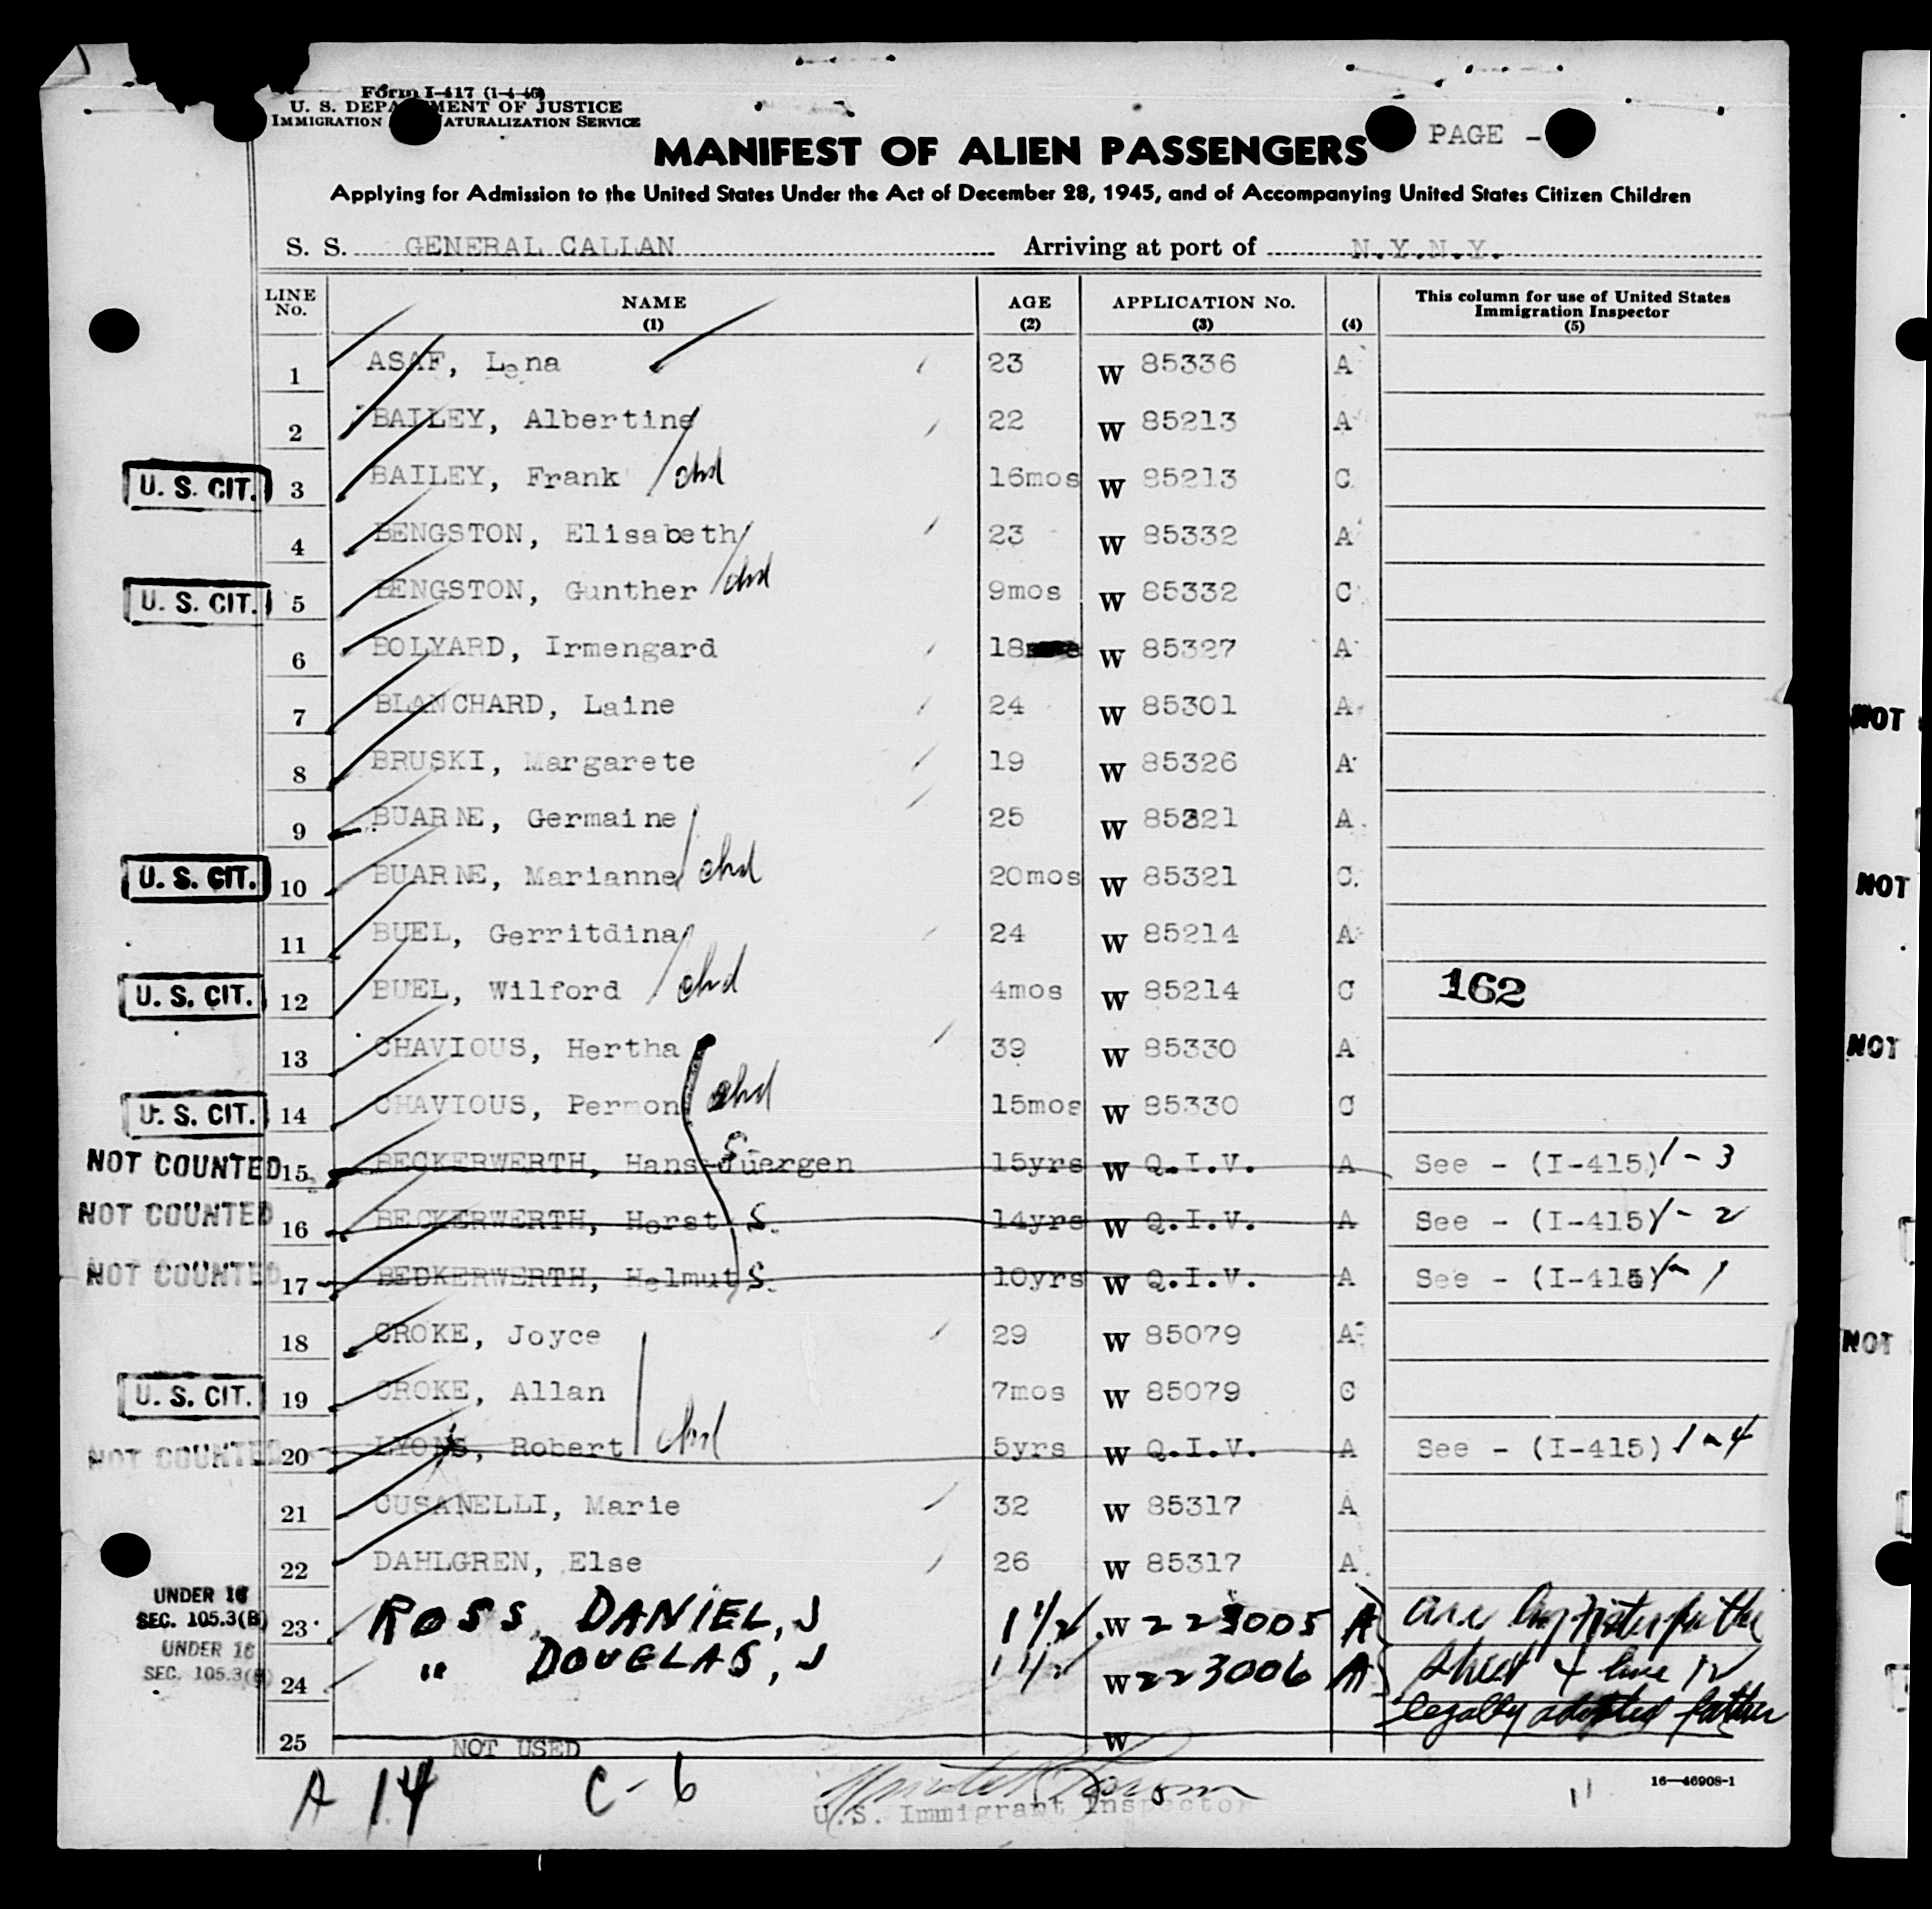 Form I-417 (1-4-46)
U. S. DEPA MENT OF JUSTICE
IMMIGRATION ATURALIZATION SERVICE
MANIFEST OF ALIEN PASSENGERS PAGE -
Applying for Admission to the United States Under the Act of December 28, 1945, and of Accompanying United States Citizen Children
S. S. GENERAL CALLAN Arriving at port of N.Y.N.Y.
LINE No. NAME (1) AGE (2) APPLICATION No. (3) (4) This column for use of United States Immigration Inspector (5)
1 ASAF, Lena 23 W 85336 A
2 BAILEY, Albertine 22 W 85213 A
U. S. CIT. 3 BAILEY, Frank chd 16mos W 85213 C
4 BENGSTON, Elisabeth 23 W 85332 A
U. S. CIT. 5 BENGSTON, Gunther chd 9mos W 85332 C
6 BOLYARD, Irmengard 18 W 85327 A
7 BLANCHARD, Laine 24 W 85301 A
8 BRUSKI, Margarete 19 W 85326 A
9 BUARNE, Germaine 25 W 85321 A
U. S. CIT. 10 BUARNE, Marianne chd 20mos W 85321 C
11 BUEL, Gerritdina 24 W 85214 A
U. S. CIT. 12 BUEL, Wilford chd 4mos W 85214 C 162
13 CHAVIOUS, Hertha 39 W 85330 A
U. S. CIT. 14 CHAVIOUS, Permon chd 15mos W 85330 C
NOT COUNTED 15 BECKERWERTH, Hans Juergen 15yrs W Q.I.V. A See - (I-415) 1-3
NOT COUNTED 16 BECKERWERTH, Horst S. 14yrs W Q.I.V. A See - (I-415) 1-2
NOT COUNTED 17 BEDKERWERTH, Helmut S. 10yrs W Q.I.V. A See - (I-415) 1-1
18 CROKE, Joyce 29 W 85079 A
U. S. CIT. 19 CROKE, Allan 7mos W 85079 C
NOT COUNTED 20 LYONS, Robert chd 5yrs W Q.I.V. A See - (I-415) 1-4
21 CUSANELLI, Marie 32 W 85317 A
22 DAHLGREN, Else 26 W 85317 A
UNDER 16
SEC. 105.3(B) 23 ROSS, DANIEL, J 1 1/2 W 223005 A
UNDER 16
SEC. 105.3(B) 24 " DOUGLAS, J 1 1/2 W 223006 A sheet + line 12
legally adopted father
25 NOT USED W
A 14 C-6
U.S. Immigrant Inspector
16—46908-1
11
NOT
NOT
NOT
NOT